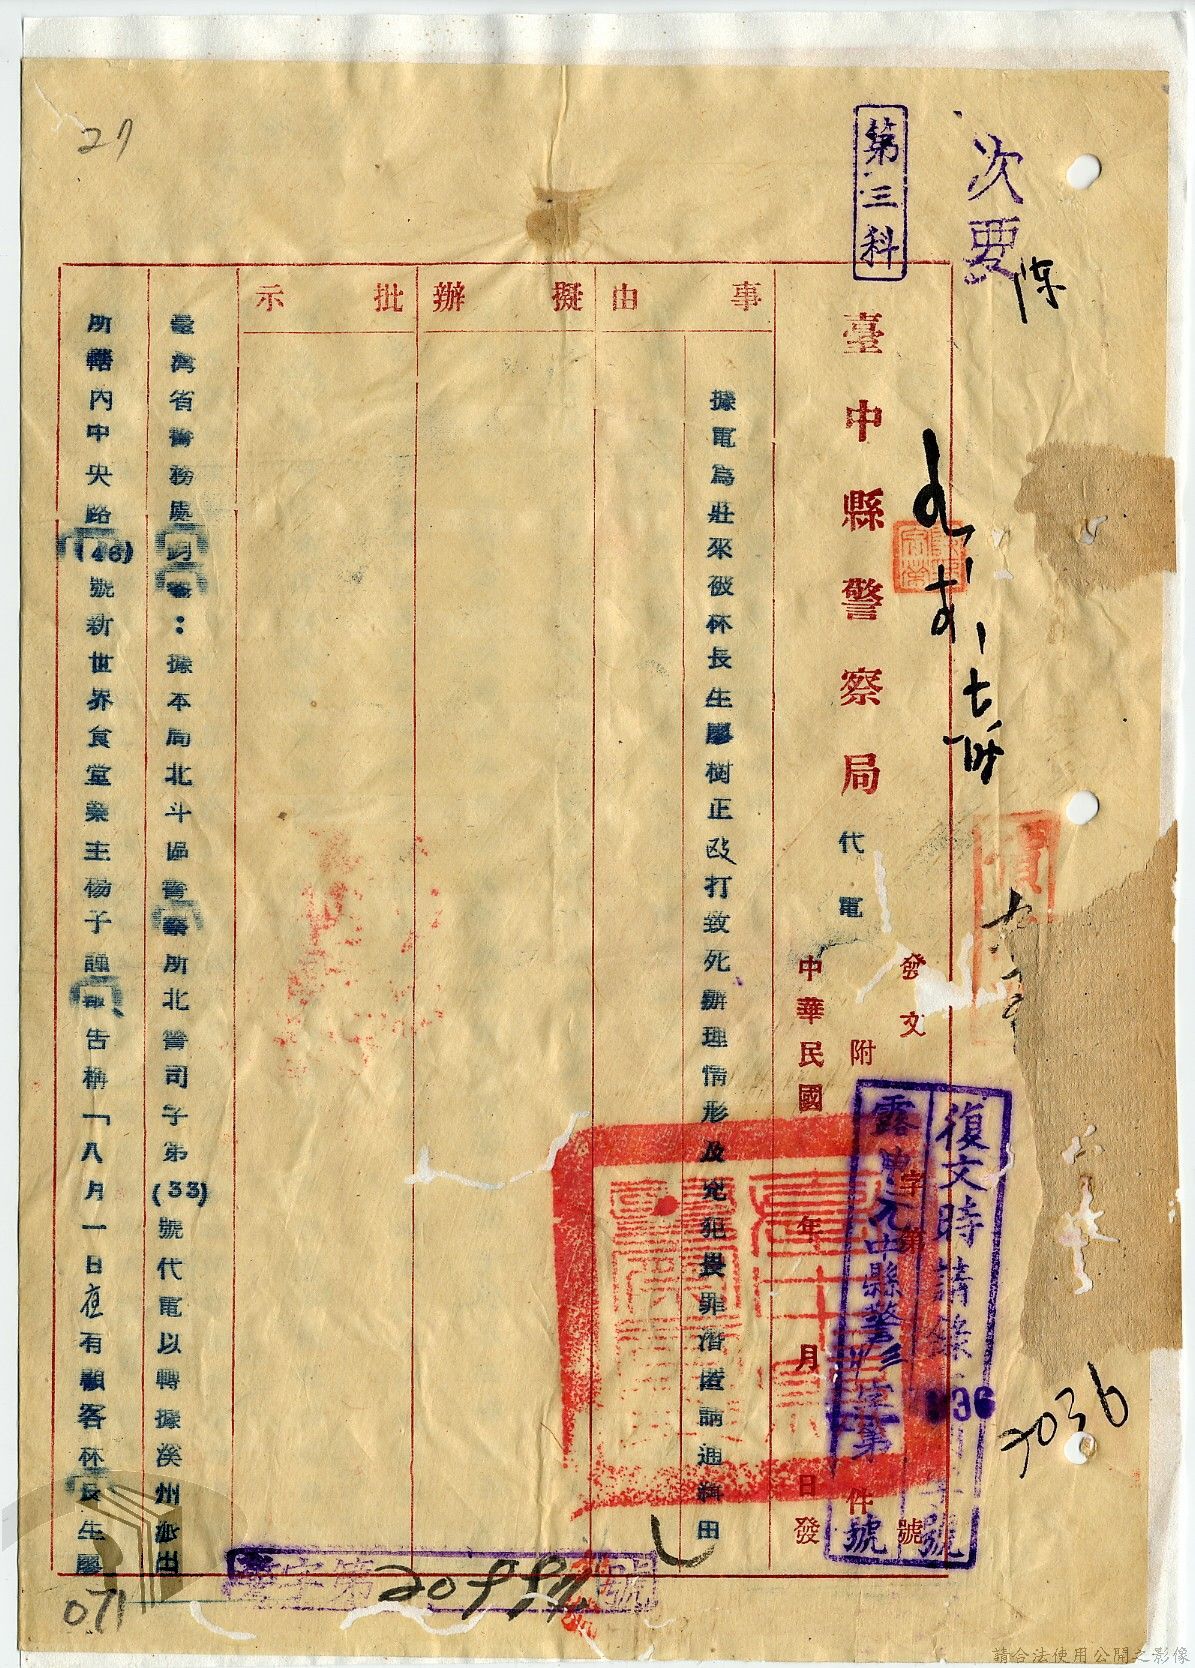 27
第三科
次要
陈
臺中縣警察局
代電
發文 字第 號
附 件
中華民國 年 月 日發
復文時請錄
號
露申元中縣警
第 號
936
7036
事由
擬辦
批示
據電為莊來被林長生廖樹正毆打致死辦理情形及兇犯畏罪潛匿請通緝由
臺灣省警務處鈞鑒：據本局北斗區警察所北警司字第(33)號代電以轉據溪州派出
所轄內中央路(46)號新世界食堂業主楊子 報告稱「八月一日夜有顧客林長生廖
字第 號
071
請合法使用公開之影像